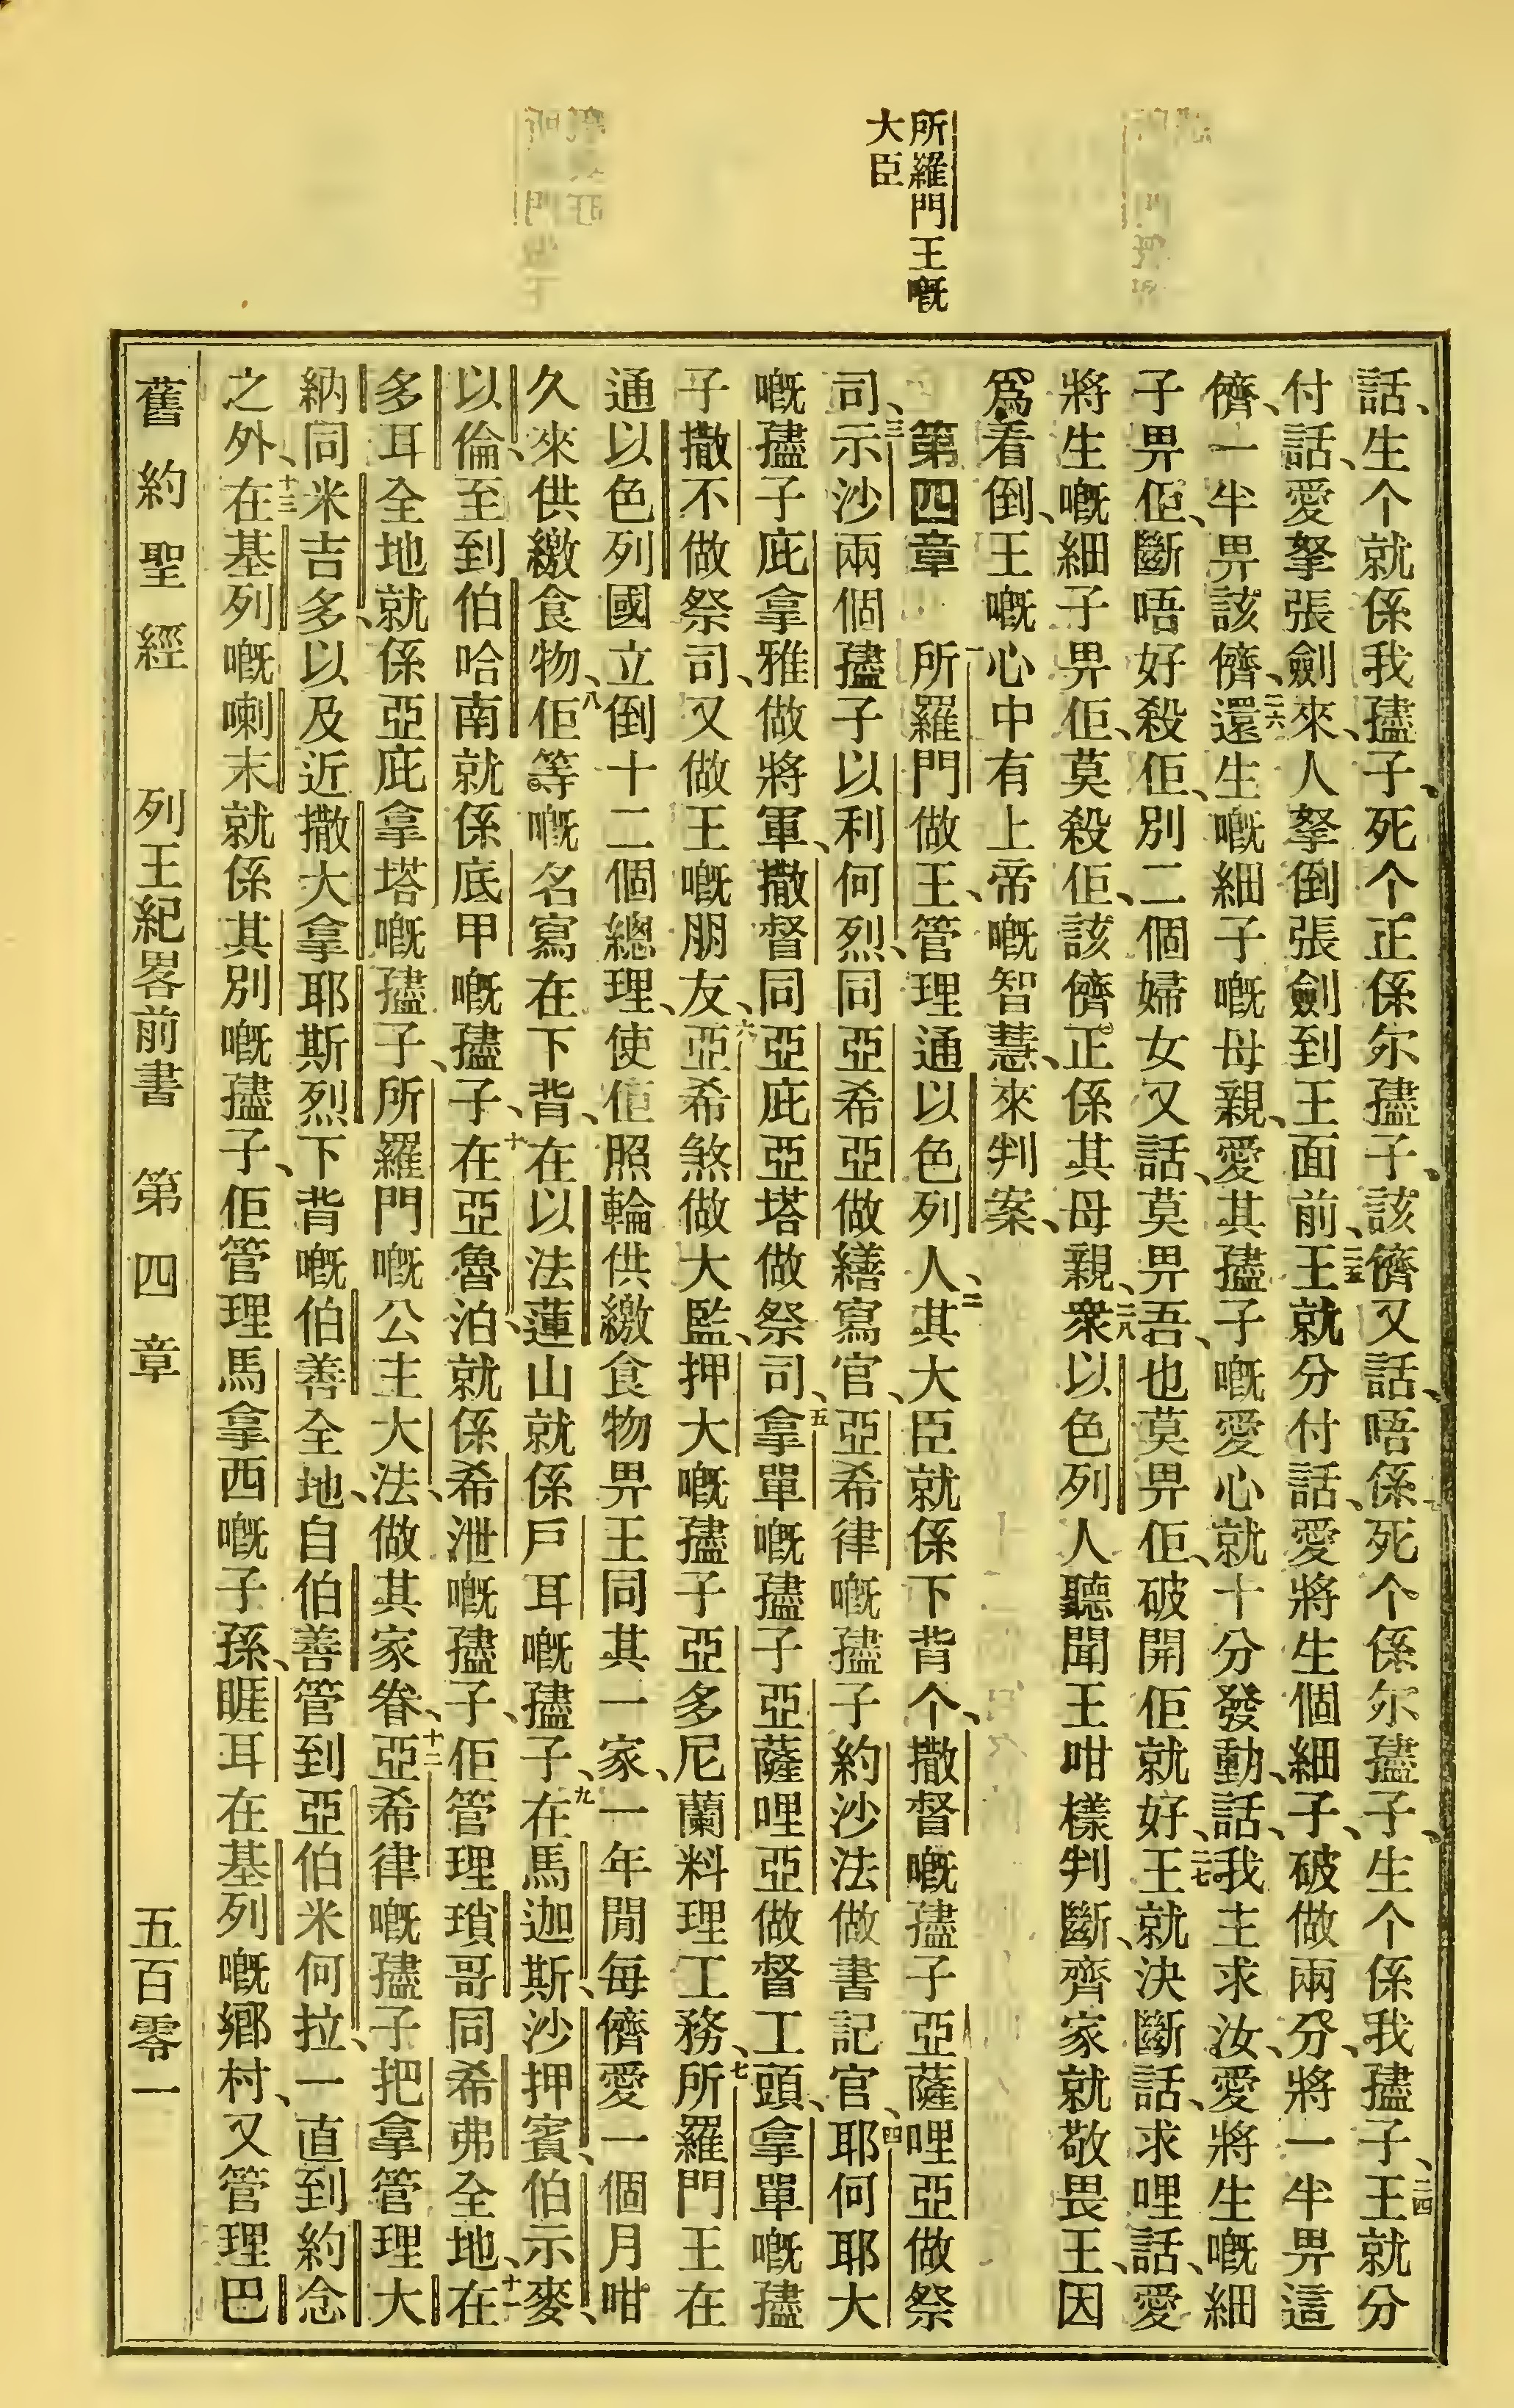 所羅門王嘅
大臣
話、生个就係我𡥧子、死个正係尔𡥧子、該儕又話、唔係死个係尔𡥧子、生个係我𡥧子、二四王就分
付話、愛拏張劍來、人拏倒張劍到王面前、二五王就分付話、愛將生個細子、破做兩分、將一半畀這
儕、一半畀該儕、二六還生嘅細子嘅母親、愛其𡥧子嘅愛心就十分發動、話、我主求汝、愛將生嘅細
子畀佢、斷唔好殺佢、別二個婦女又話、莫畀吾、也莫畀佢、破開佢就好、二七王就決斷話、求哩話、愛
將生嘅細子畀佢、莫殺佢、該儕正係其母親、二八衆以色列人聽聞王咁樣判斷、齊家就敬畏王、因
爲看倒、王嘅心中有上帝嘅智慧、來判案、
第四章 一所羅門做王、管理通以色列人、二其大臣就係下背个、撒督嘅𡥧子亞薩哩亞做祭
司、三示沙兩個𡥧子以利何烈、同亞希亞做繕寫官、亞希律嘅𡥧子約沙法做書記官、四耶何耶大
嘅𡥧子庇拿雅做將軍、撒督同亞庇亞塔做祭司、五拿單嘅𡥧子亞薩哩亞做督工頭、拿單嘅𡥧
子撒不做祭司、又做王嘅朋友、六亞希煞做大監、押大嘅𡥧子亞多尼蘭料理工務、七所羅門王在
通以色列國立倒十二個總理、使佢照輪供繳食物畀王同其一家、一年閒每儕愛一個月咁
久來供繳食物、八佢等嘅名寫在下背、在以法蓮山就係戶耳嘅𡥧子、九在馬迦斯、沙押賓、伯示麥、
以倫、至到伯哈南就係底甲嘅𡥧子、十在亞魯泊、就係希泄嘅𡥧子、佢管理瑣哥同希弗全地、十一在
多耳全地就係亞庇拿塔嘅𡥧子、所羅門嘅公主大法、做其家眷、十二亞希律嘅𡥧子把拿管理大
納同米吉多、以及近撒大拿耶斯烈下背嘅伯善全地、自伯善管到亞伯米何拉、一直到約念
之外、十三在基列嘅喇末就係其別嘅𡥧子、佢管理馬拿西嘅子孫、睚耳在基列嘅鄉村、又管理巴
舊約聖經 列王紀畧前書 第四章 五百零一